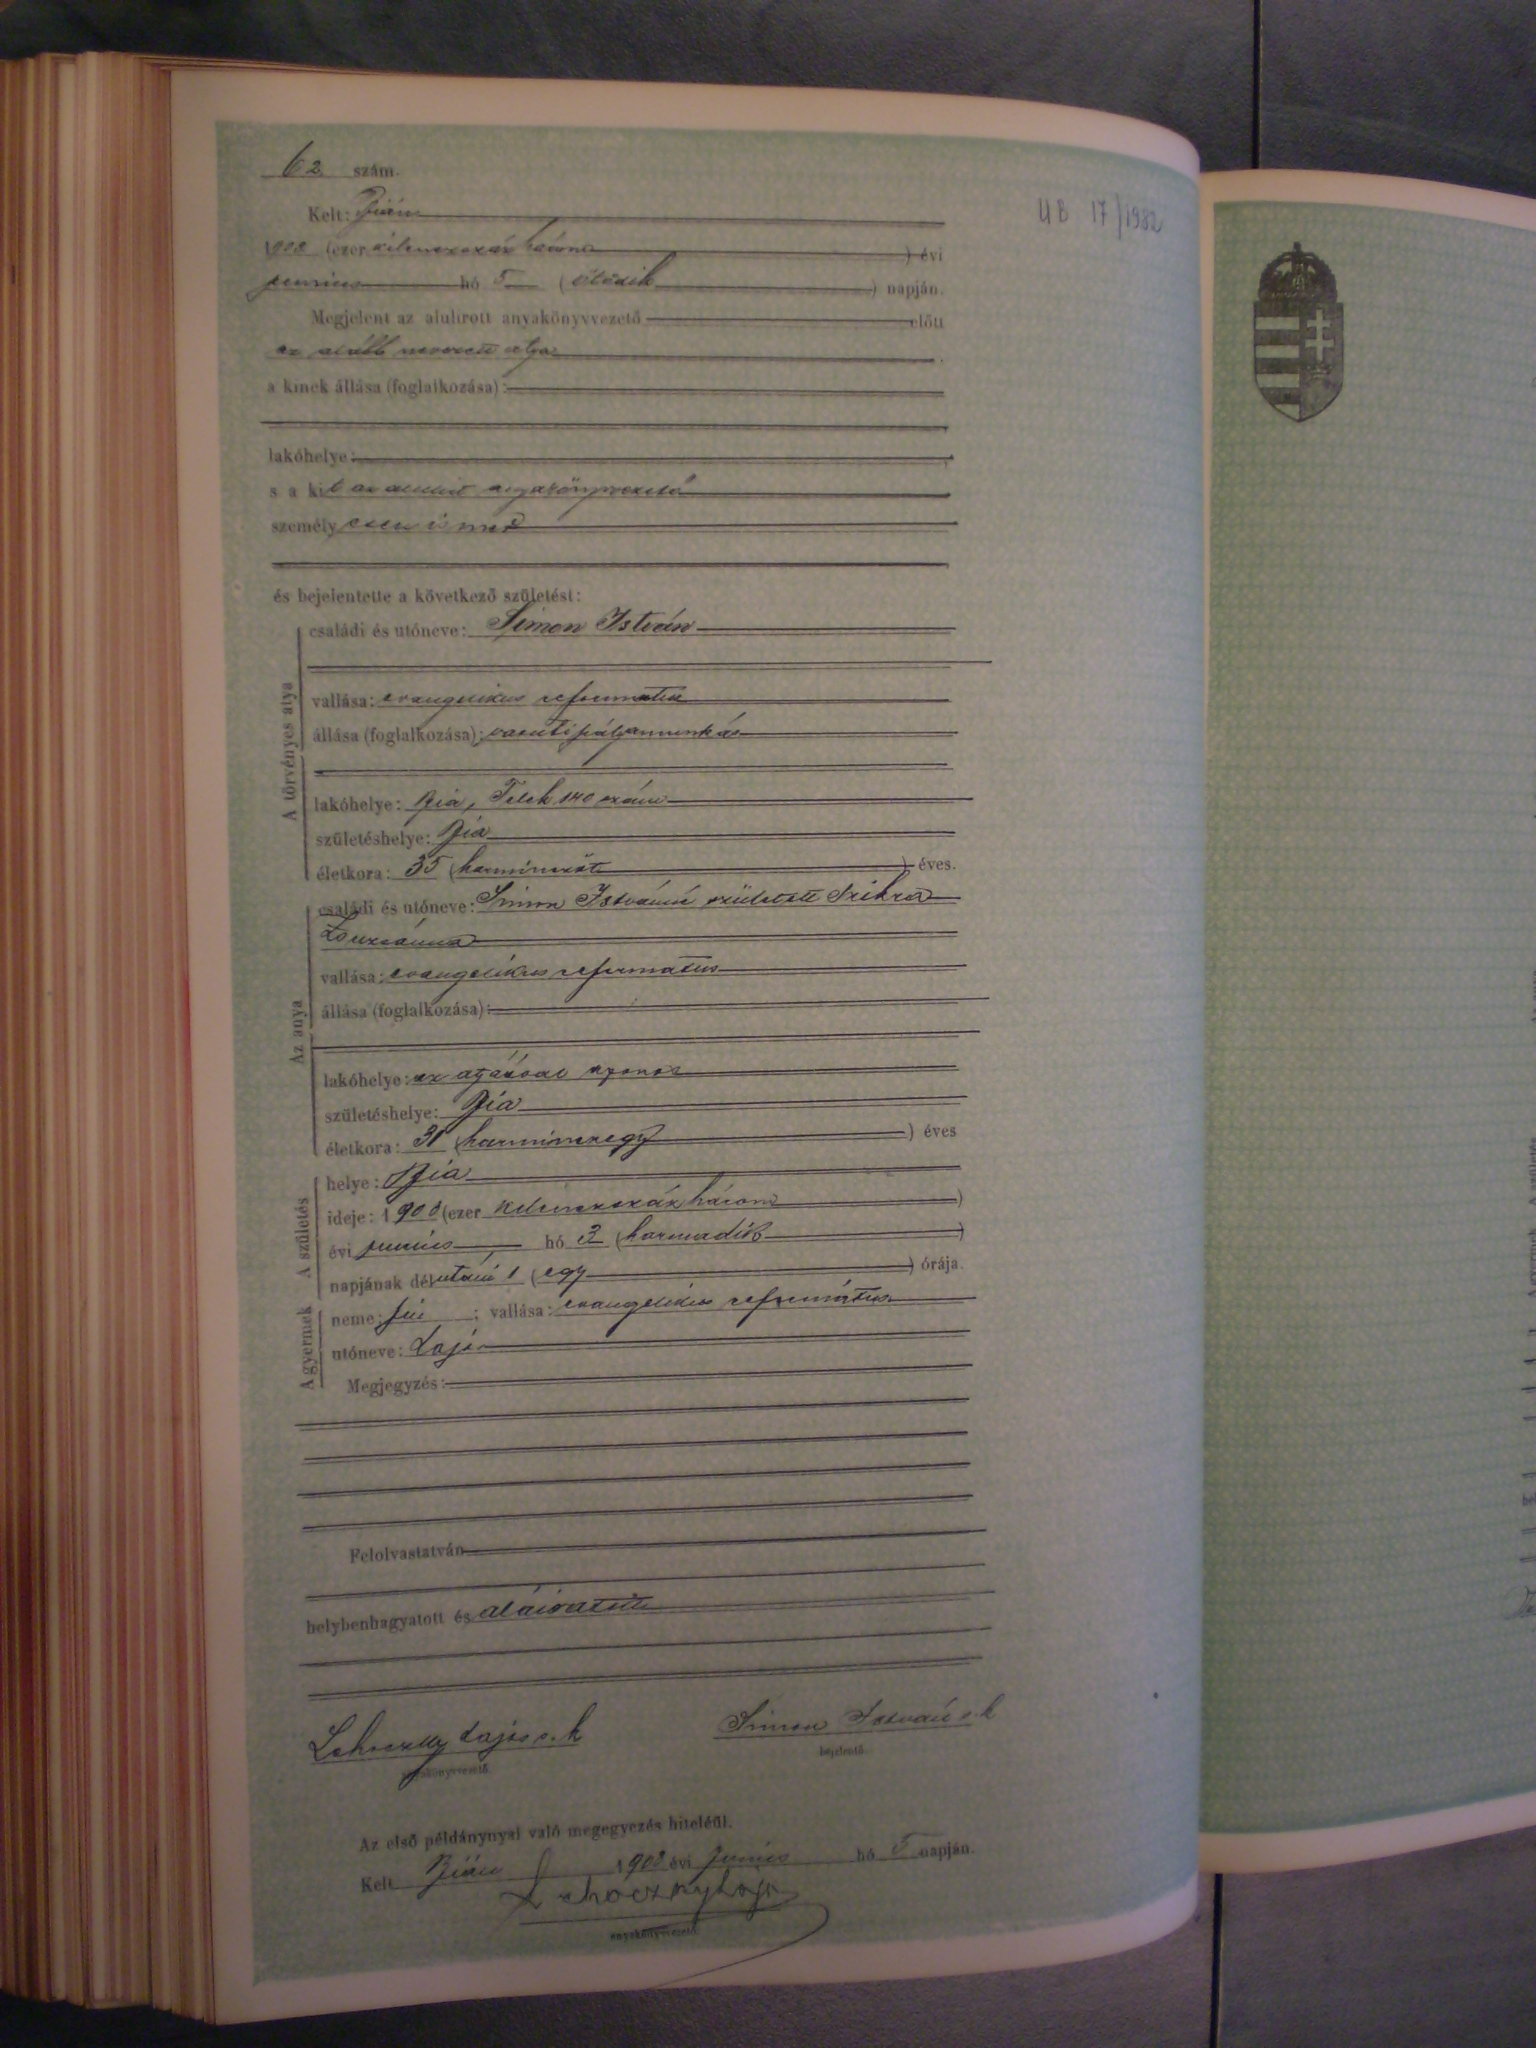 62 szám.
UB 17/1982
Kelt: Bián
1903 (ezer kilenczszáz három) évi
junius hó 5 (ötödik) napján.
Megjelent az alulirott anyakönyvvezető előtt
az alább nevezett atya
a kinek állása (foglalkozása):
lakóhelye:
s a kit az alulirt anyakönyvvezető
személyesen ismer
és bejelentette a következő születést:
A törvényes atya
családi és utóneve: Simon István
vallása: evangelikus reformatus
állása (foglalkozása): vasuti pályamunkás
lakóhelye: Bia, Telek 140 szám
születéshelye: Bia
életkora: 35 (harminczöt) éves.
Az anya
családi és utóneve: Simon Istvánné született Szikra
Zsuzsánna
vallása: evangelikus reformatus
állása (foglalkozása):
lakóhelye: az atyáéval azonos
születéshelye: Bia
életkora: 31 (harminczegy) éves
A születés
helye: Bia
ideje: 1903 (ezer kilenczszáz három)
évi junius hó 3 (harmadik)
napjának délutáni 1 (egy) órája.
A gyermek
neme: fiu; vallása: evangelikus református
utóneve: Lajos
Megjegyzés:
Felolvastatván
helybenhagyatott és aláiratott
Lehoczky Lajos s. k Simon István s. k
anyakönyvvezető. bejelentő.
Az első példánynyal való megegyezés hiteléül.
Kelt Bián 1903 évi junius hó 5 napján.
Lehoczky Lajos
anyakönyvvezető.